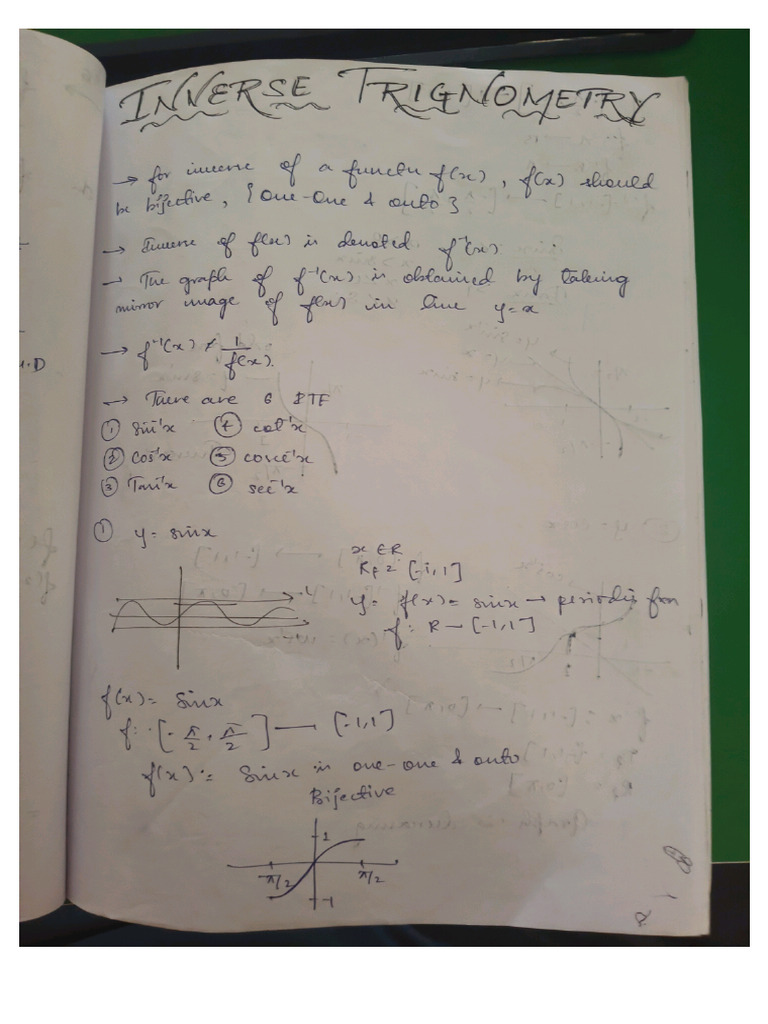 INVERSE TRIGNOMETRY
→ for inverse of a functn f(x), f(x) should
be bijective, {One-One & onto}
→ Inverse of f(x) is denoted f⁻¹(x)
→ The graph of f⁻¹(x) is obtained by taking
mirror image of f(x) in line y=x
→ f⁻¹(x) ≠ 1/f(x).
→ There are 6 ITF
① Sin⁻¹x ④ cot⁻¹x
② Cos⁻¹x ⑤ cosec⁻¹x
③ Tan⁻¹x ⑥ sec⁻¹x
① y = sinx
x ∈ R
Rf = [-1,1]
y = f(x) = sinx → periodic fxn
f: R → [-1,1]
f(x) = Sinx
f: [-π/2, π/2] → [-1,1]
f(x) = Sinx is one-one & onto
Bijective
2
-π/2 π/2
-1